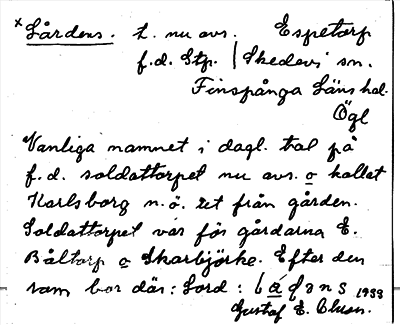 x Lårdens. t. nu avs. Espetorp
f.d. Stp. | Skedevi sn.
Finspånga Läns hd.
Ögl
Vanliga namnet i dagl. tal på
f.d. soldattorpet nu avs. o kallat
Karlsborg n.ö. ut från gården.
Soldattorpet var för gårdarna E.
Båltorp o Skarbjörke. Efter den
som bor där: Lord:
1933
Gustaf E. Olson.